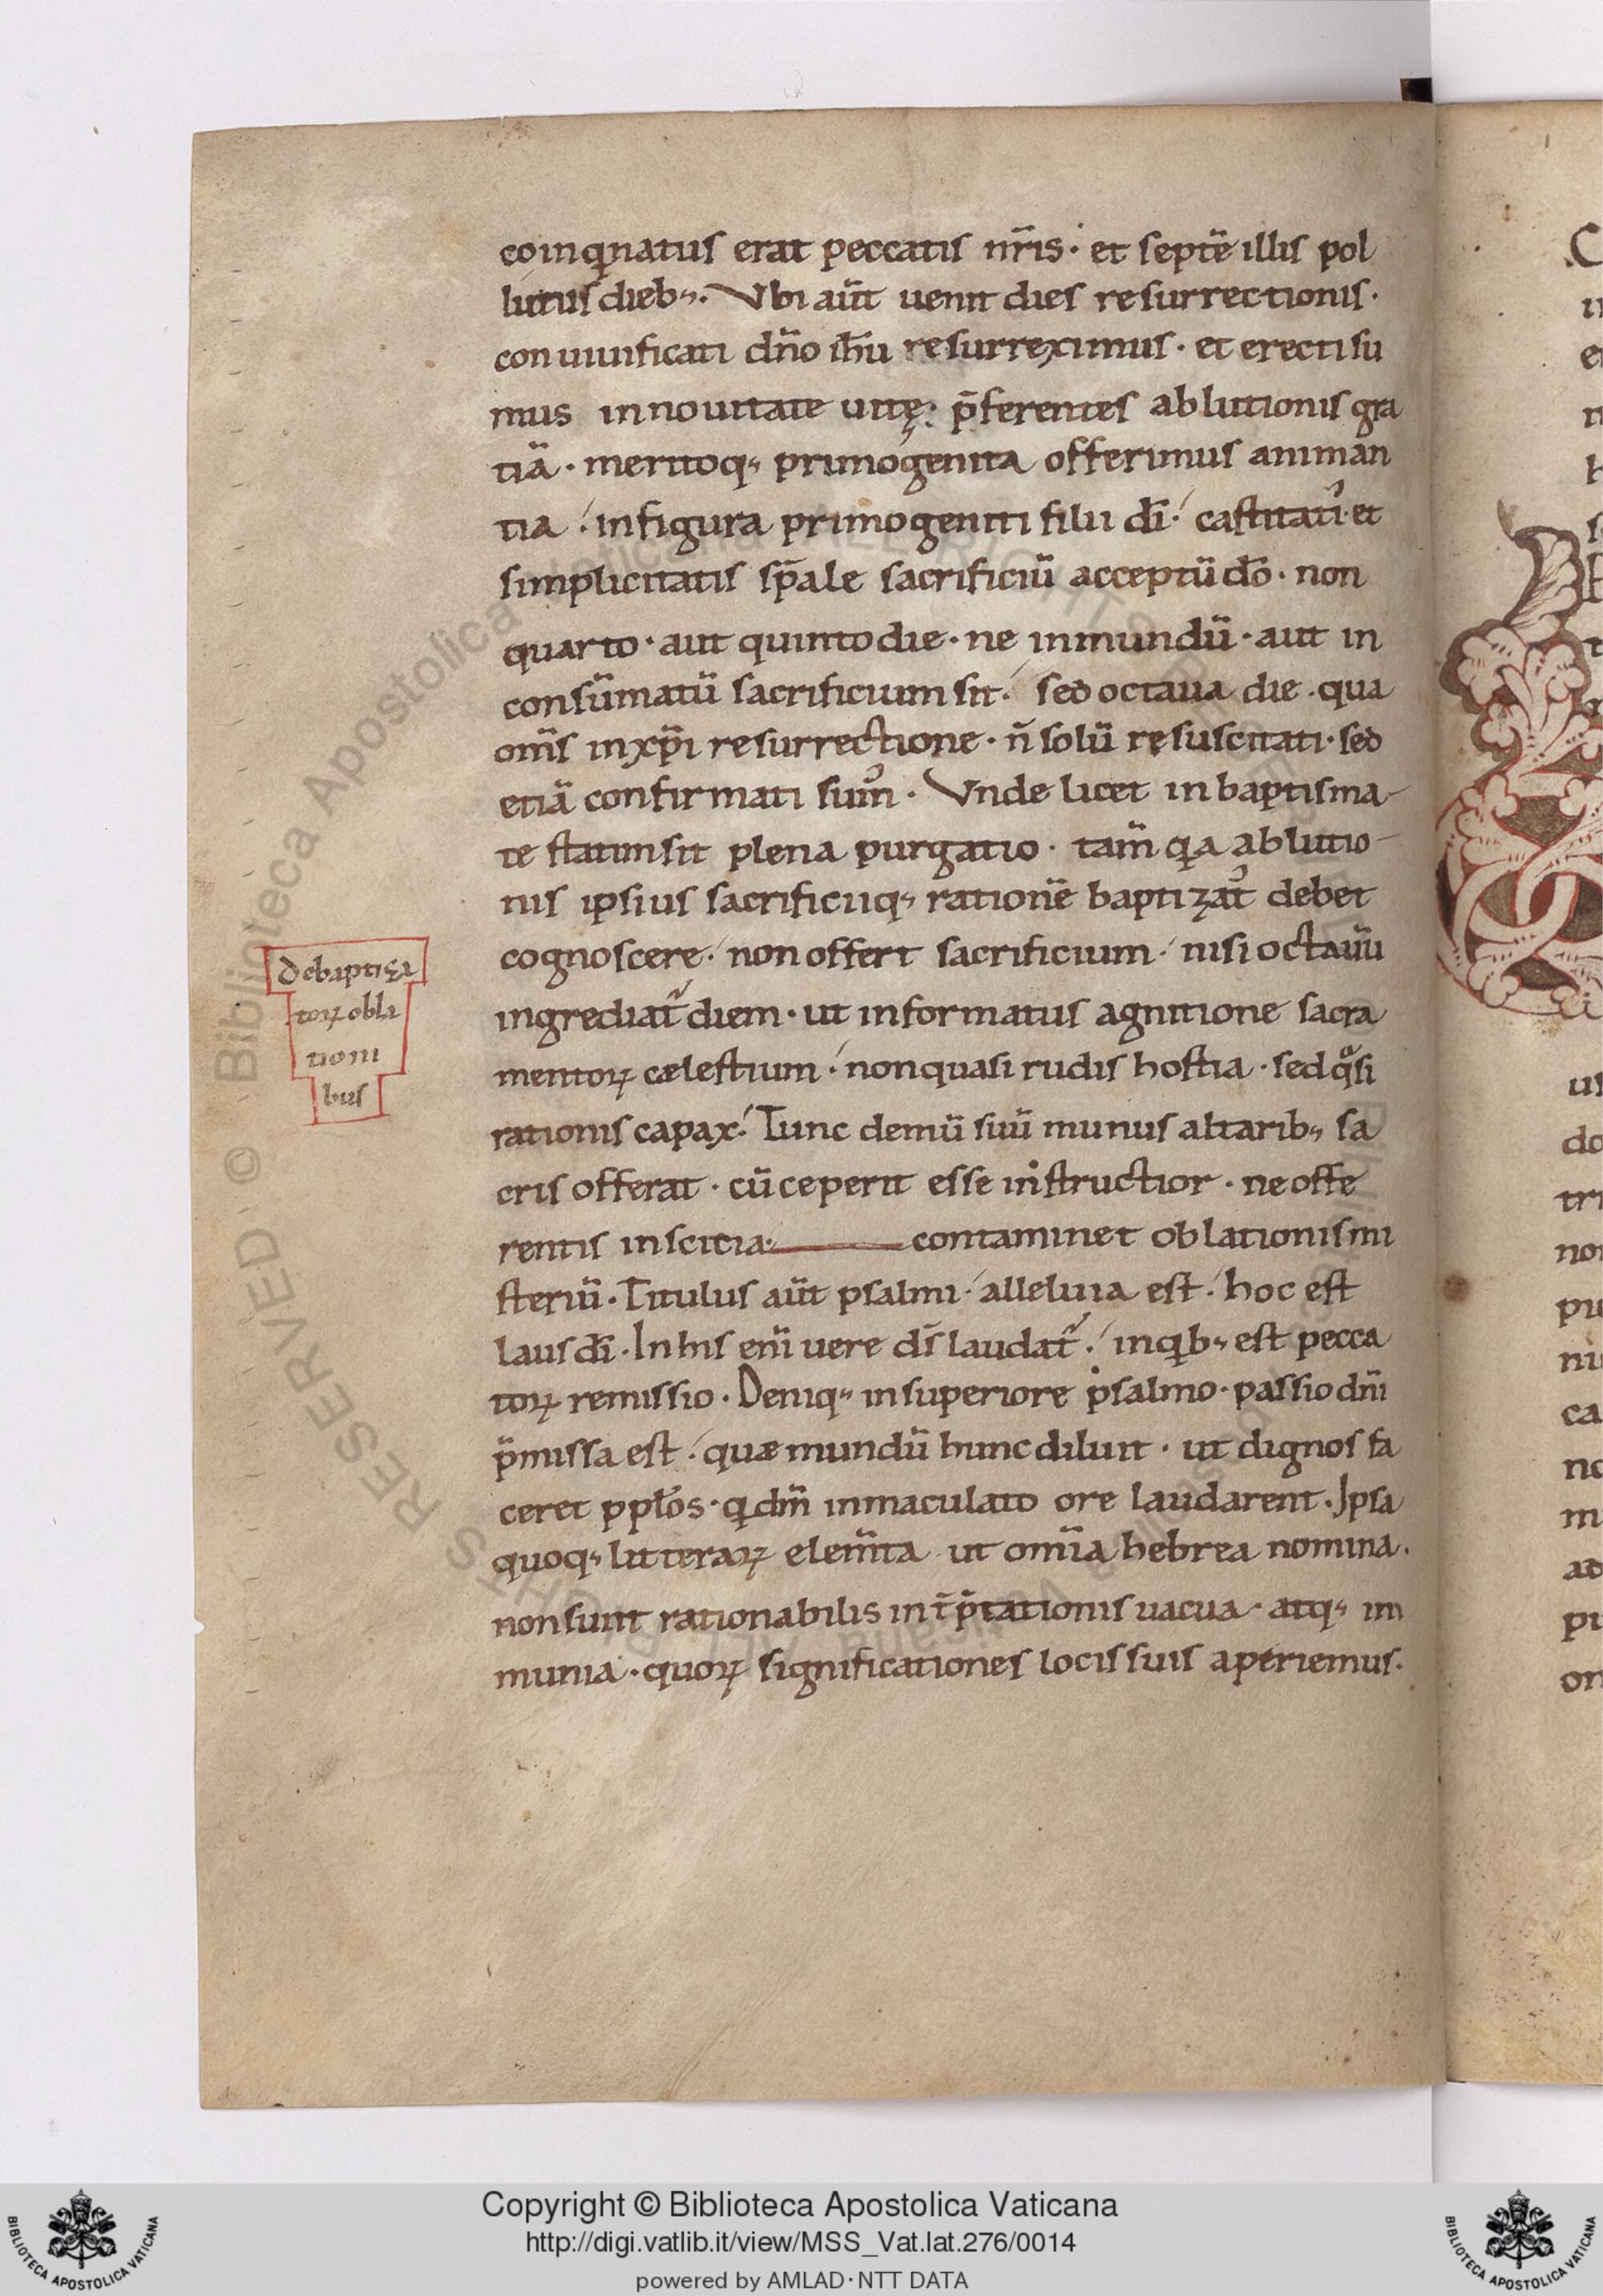 coinqͥnatus erat peccatis nr̃is· et septē illis pol
lutus dieb;. Vbi aūt uenit dies resurrectionis·
conuiuificati dn̄o ih̄u resurreximus· et erecti su
mus in nouitate uitę: p̄ferentes ablutionis gra
tiā· meritoq; primogenita offerimus animan
tia· in figura primogeniti filii dī· castitati᾽ et
simplicitatis sp̄ale sacrificiū acceptū dō· non
quarto· aut quinto die· ne inmundū· aut in
consūmatū sacrificium sit· sed octaua die· qua
om̄s in xp̄i resurrectione· n̄ solū resuscitati· sed
etiā confirmati sum᾽· Vnde licet in baptisma-
te statim sit plena purgatio· tam̄ qͥa ablutio-
nis ipsius sacrificiiq; rationē baptizat᾽ debet
cognoscere· non offert sacrificium· nisi octauū
ingrediat᾽ diem· ut informatus agnitione sacra
mentoꝝ cælestium· non quasi rudis hostia· sed qͣsi
rationis capax· Tunc demū suū munus altarib; sa
cris offerat· cū ceperit esse instructior· ne offe
rentis inscitia contaminet oblationis mi
steriū· Titulus aūt psalmi· alleluia est· hoc est
laus dī· In his eni᷃ uere ds̄ laudat᾽· in qͥb; est pecca
toꝝ remissio· Deniq; in superiore psalmo· passio dn̄i
p̄missa est· quæ mundū hunc diluit· ut dignos fa
ceret pp̄los· qͥ dm̄ inmaculato ore laudarent· Ipsa
quoq; litteraꝝ elem̄ta ut om̄ia hebrea nomina·
non sunt rationabilis int̄p̄tationis uacua· atq; im
munia· quoꝝ significationes locis suis aperiemus·
De baptiza
toꝝ obla
tioni
bus
Copyright © Biblioteca Apostolica Vaticana
http://digi.vatlib.it/view/MSS_Vat.lat.276/0014
powered by AMLAD·NTT DATA
BIBLIOTECA APOSTOLICA VATICANA
BIBLIOTECA APOSTOLICA VATICANA